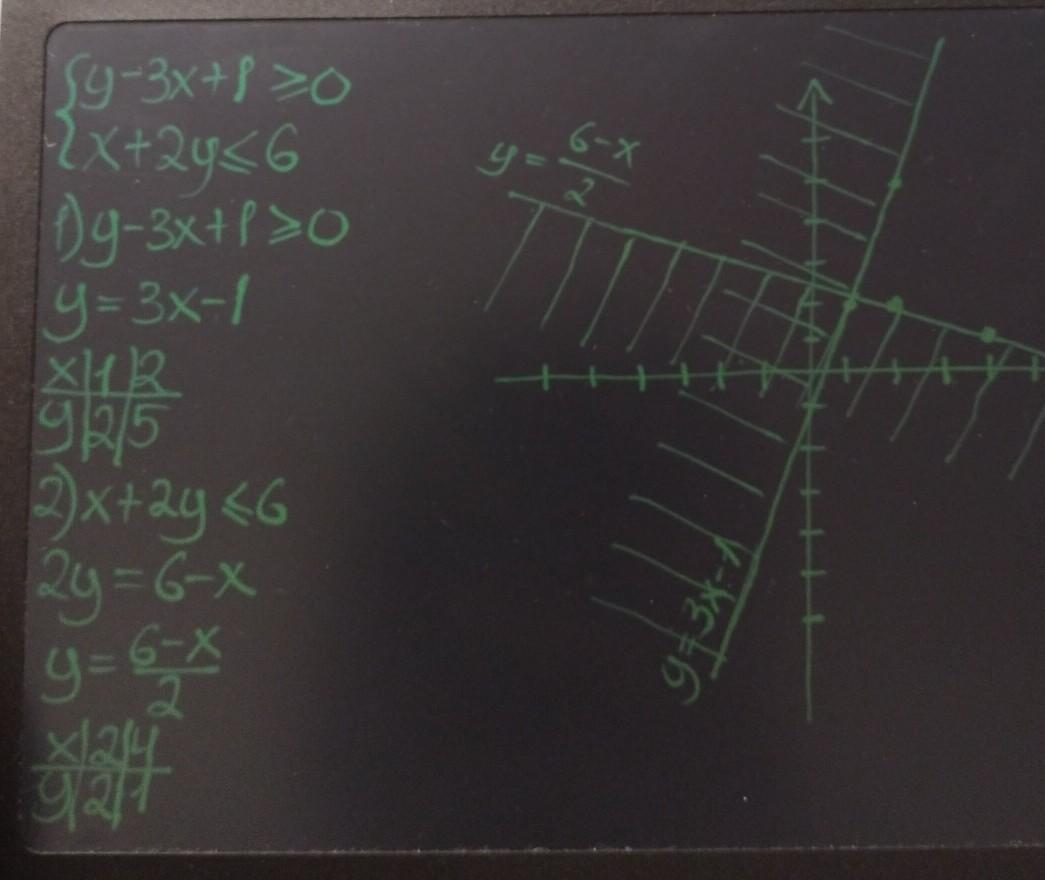 {y-3x+1≥0
{x+2y≤6
1)y-3x+1≥0
y=3x-1
x|1|2
y|2|5
2)x+2y≤6
2y=6-x
y=6-x/2
x|2|4
y|2|1
y=6-x/2
y=3x-1